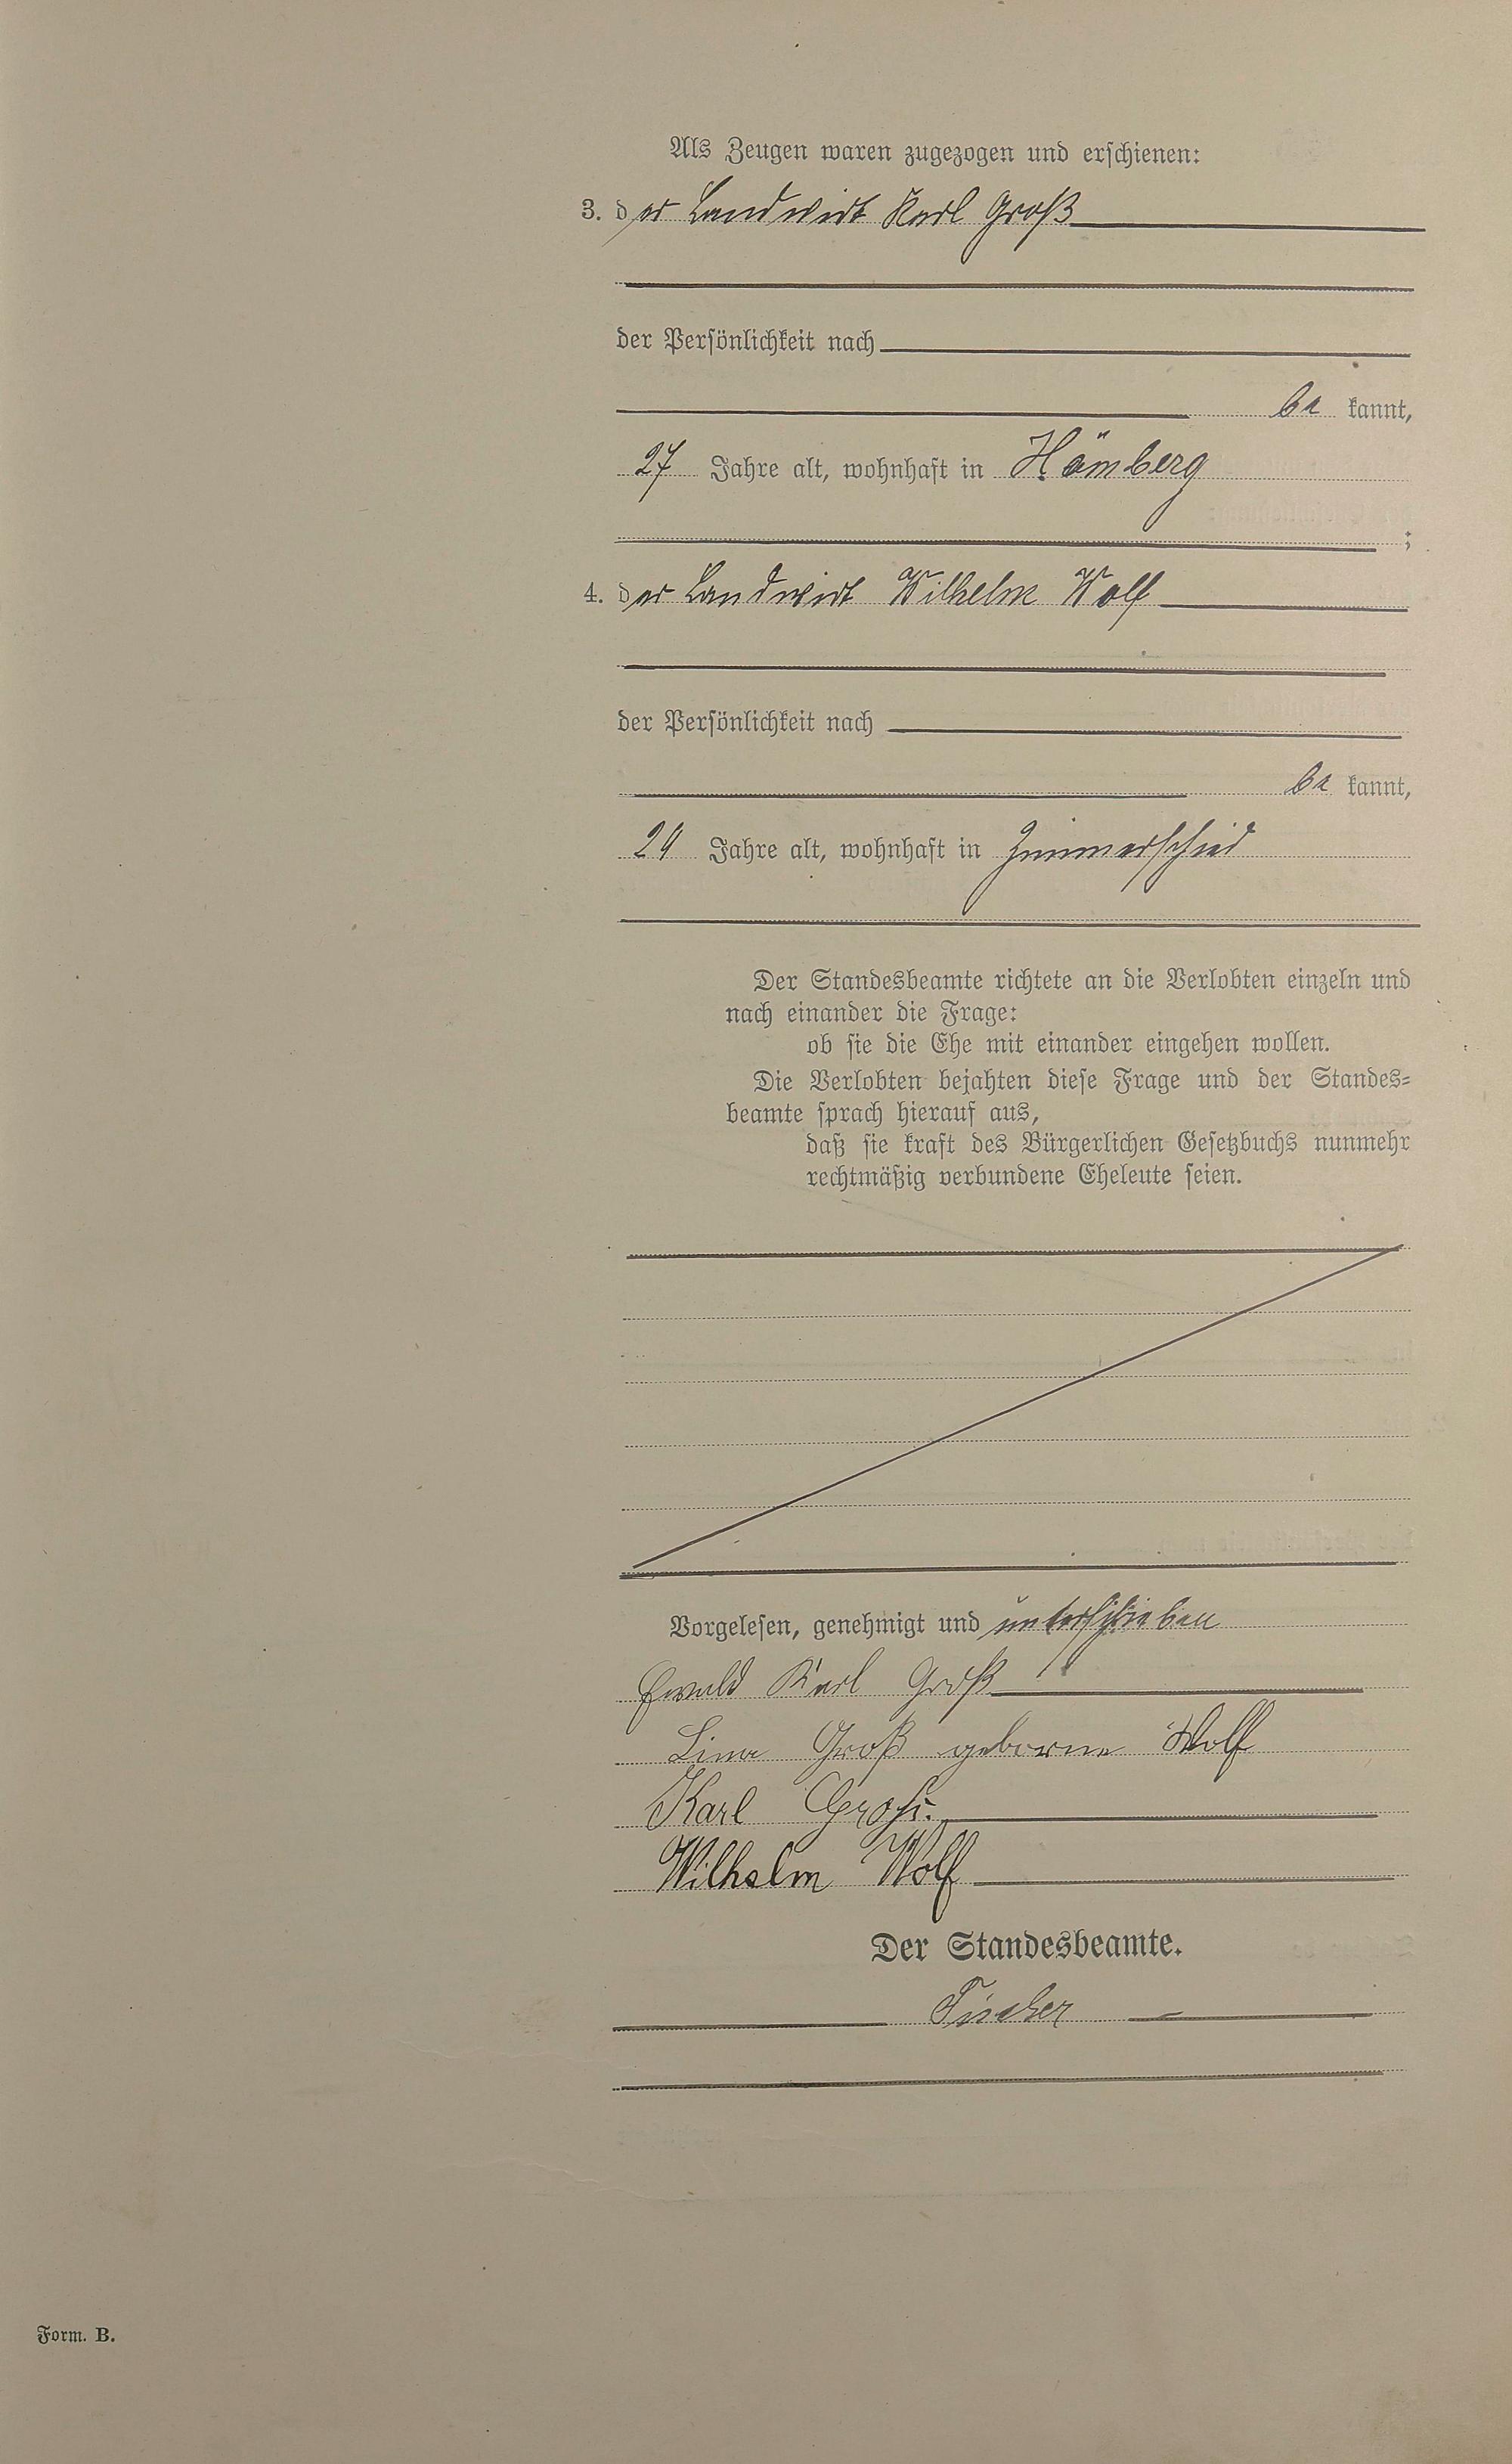 Als Zeugen waren zugezogen und erschienen:
3. der Landwirt Karl Groß
der Persönlichkeit nach
be kannt,
27 Jahre alt, wohnhaft in Hömberg
;
4. der Landwirt Wilhelm Wolf
der Persönlichkeit nach
be kannt,
29 Jahre alt, wohnhaft in Zimmerschied
Der Standesbeamte richtete an die Verlobten einzeln und
nach einander die Frage:
ob sie die Ehe mit einander eingehen wollen.
Die Verlobten bejahten diese Frage und der Standes-
beamte sprach hierauf aus,
daß sie kraft des Bürgerlichen Gesetzbuchs nunmehr
rechtmäßig verbundene Eheleute seien.
Vorgelesen, genehmigt und unterschrieben
Ewald Karl Groß
Lina Groß geborne Wolf
Karl Groß.
Wilhelm Wolf
Der Standesbeamte.
Fischer
Form. B.